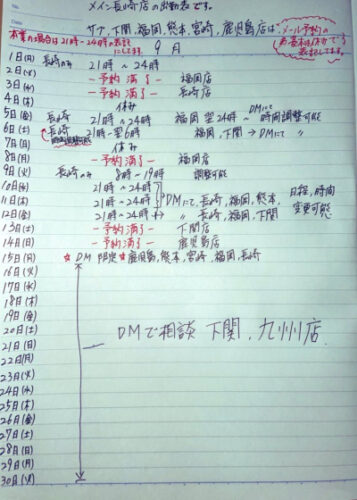 メイン長崎店の出勤表です。
サブ、下関、福岡、熊本、宮崎、鹿児島店は、メール予約の
本業の場合は21時〜24時の表記にしてます。
為基本は休みで表記してます。
9月
1日(月) 長崎のみ 21時〜24時
2日(火) ー予約満了ー 福岡店
3日(水) ー予約満了ー 長崎店
4日(木) 休み
5日(金) 長崎 21時〜24時 福岡 翌24時〜 DMにて時間調整可能
6日(土) 長崎 21時〜翌6時 福岡、下関→DMにて 〃
時間調整可能
7日(日) 休み
8日(月) ー予約満了ー 福岡店
9日(火) 長崎のみ 8時〜19時 調整可能
10日(水) 21時〜24時
11日(木) 21時〜24時 DMにて、長崎、福岡、熊本、 日程、時間変更可能
12日(金) 21時〜24時 〃 長崎、福岡、下関
13日(土) ー予約満了ー 下関店
14日(日) ー予約満了ー 鹿児島店
15日(月) ★DM限定★鹿児島、熊本、宮崎、福岡、長崎
16日(火)
17日(水)
18日(木)
19日(金)
20日(土) DMで相談 下関、九州店
21日(日)
22日(月)
23日(火)
24日(水)
25日(木)
26日(金)
27日(土)
28日(日)
29日(月)
30日(火)